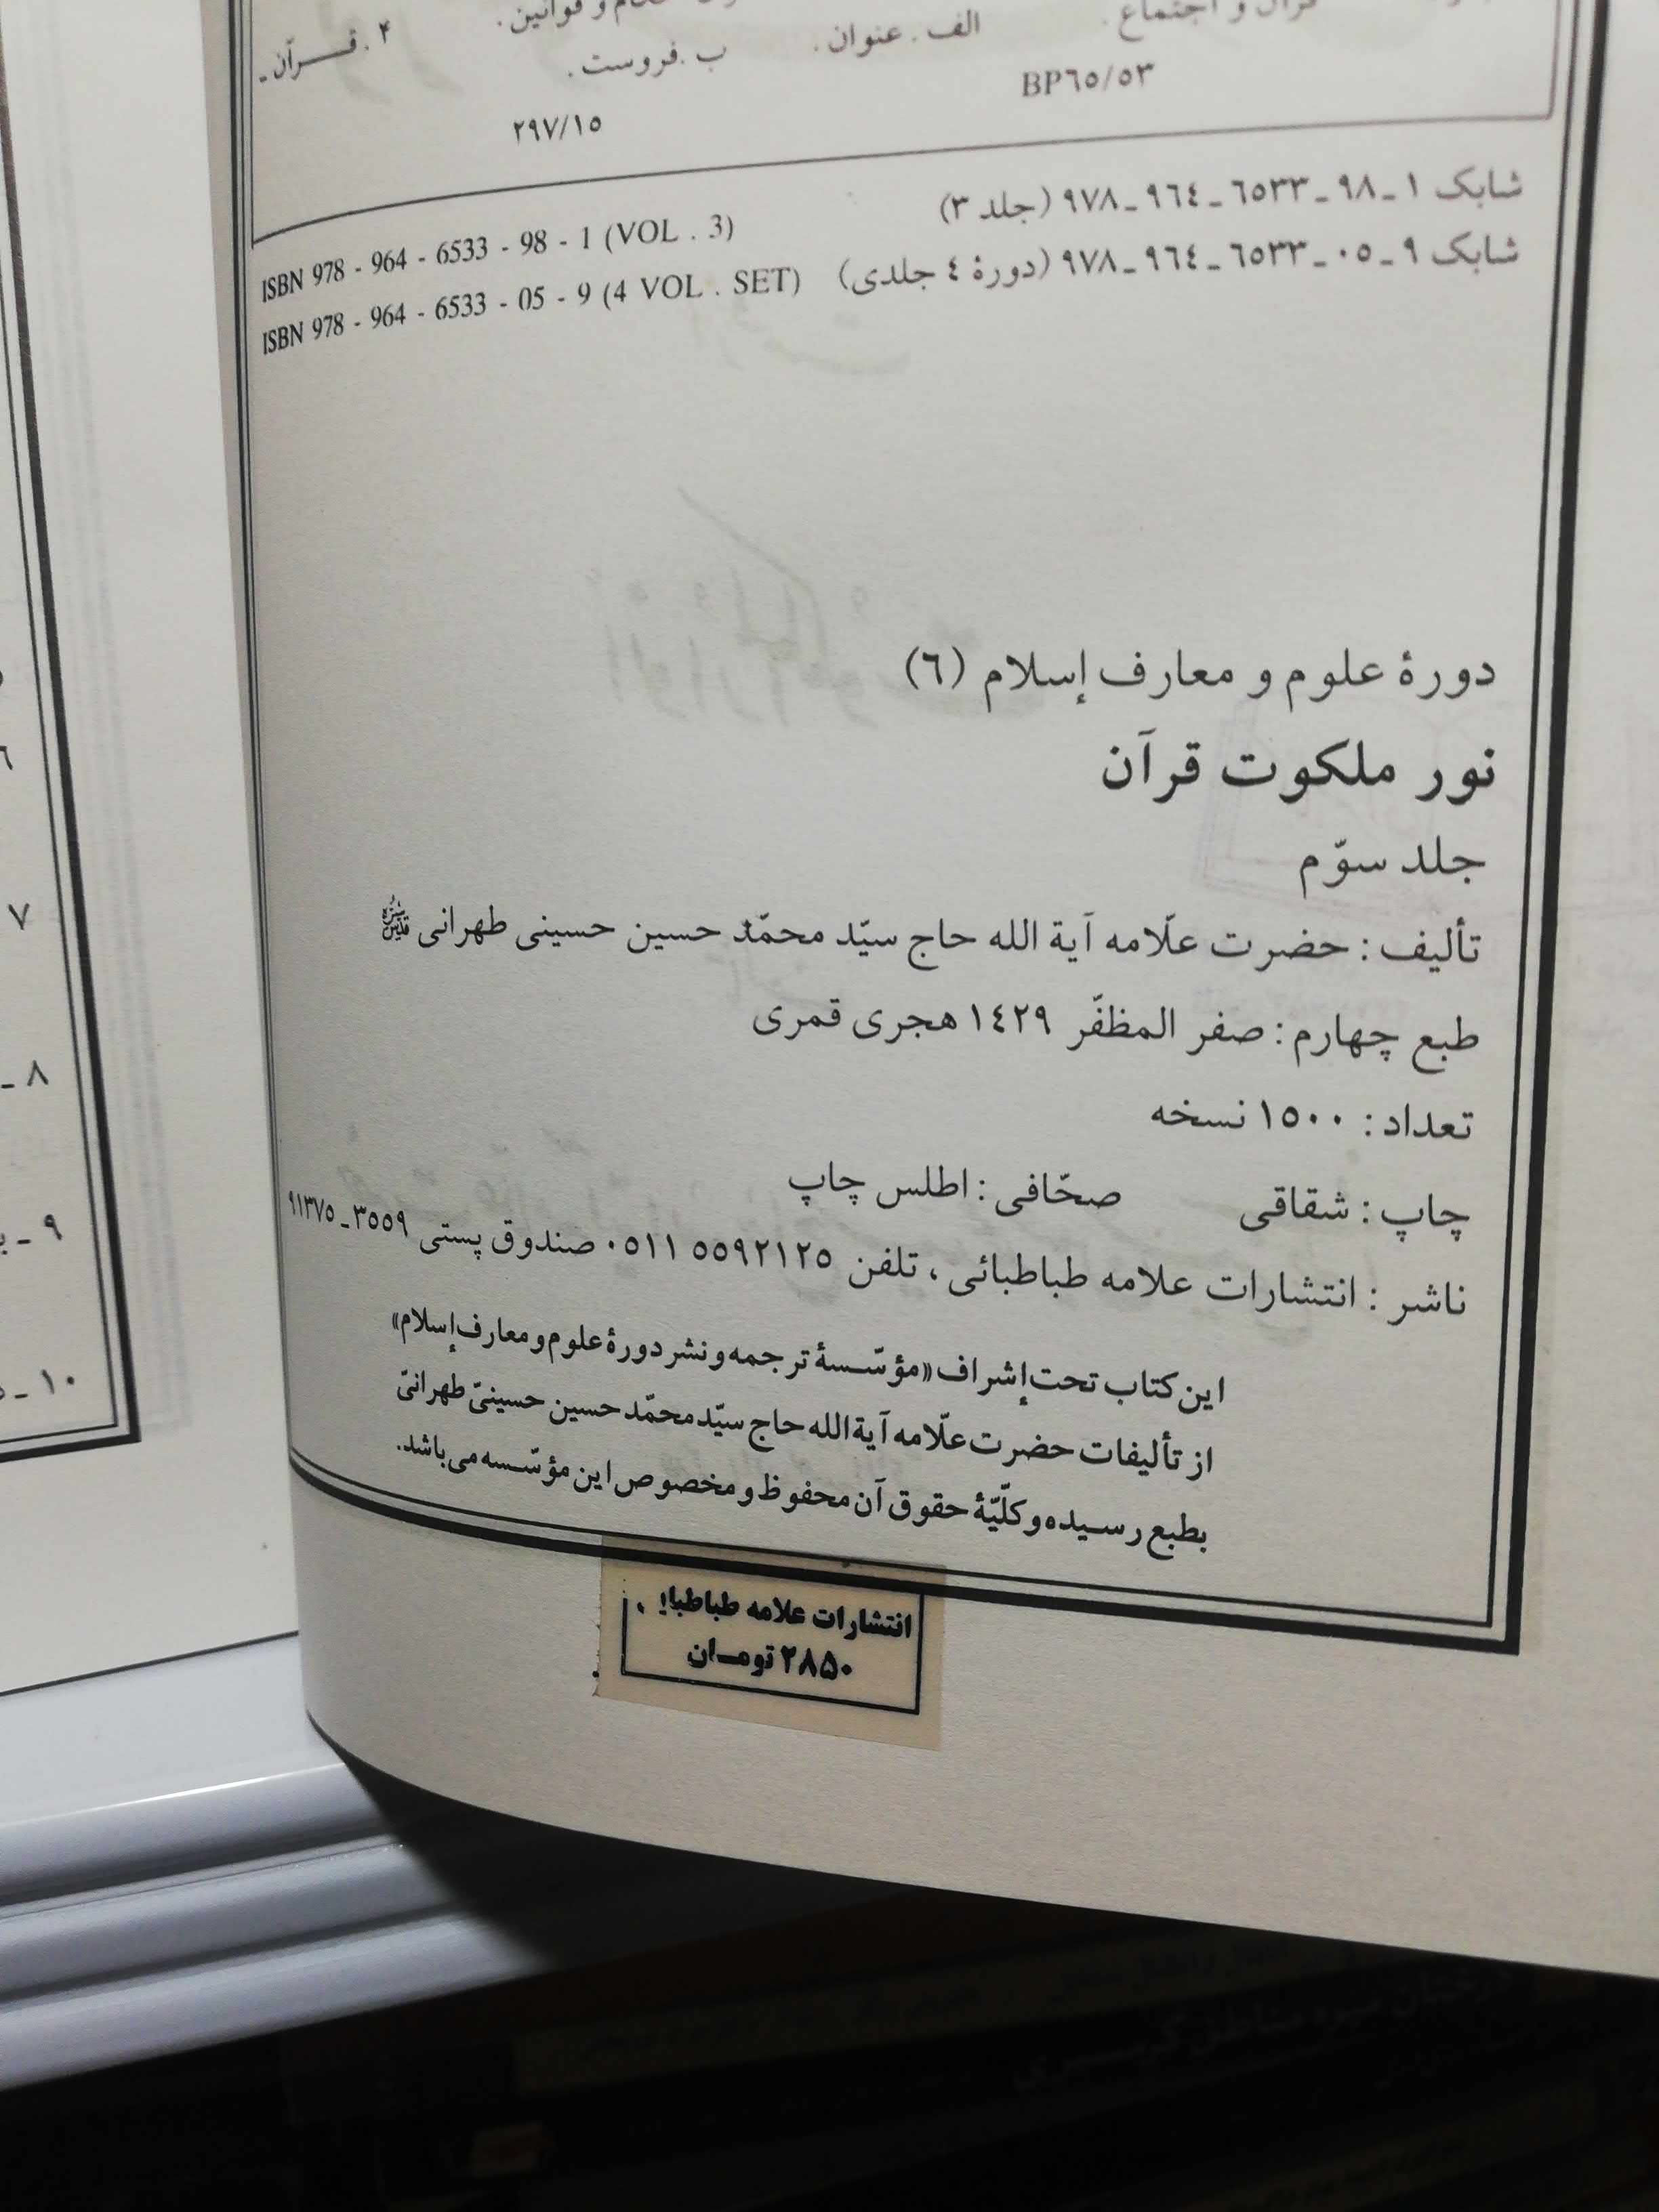 و قوانین.
۴. قـــرآن ـ
قرآن و اجتماع.
الف. عنوان.
ب. فروست.
BP٦٥/٥٣
٢٩٧/١٥
شابک ١ ـ ٩٨ ـ ٦٥٣٣ ـ ٩٦٤ ـ ٩٧٨ (جلد ٣)
ISBN 978 - 964 - 6533 - 98 - 1 (VOL . 3)
شابک ٩ ـ ٠٥ ـ ٦٥٣٣ ـ ٩٦٤ ـ ٩٧٨ (دورهٔ ٤ جلدی)
ISBN 978 - 964 - 6533 - 05 - 9 (4 VOL . SET)
دورهٔ علوم و معارف إسلام (٦)
نور ملکوت قرآن
جلد سوّم
تألیف : حضرت علّامه آیة الله حاج سیّد محمّد حسین حسینی طهرانی
طبع چهارم : صفر المظفّر ١٤٢٩ هجری قمری
تعداد : ١٥٠٠ نسخه
چاپ : شقاقی صحّافی : اطلس چاپ
ناشر : انتشارات علامه طباطبائی ، تلفن ٥٥٩٢١٢٥ ٠٥١١ صندوق پستی ٣٥٥٩ ـ ٩١٣٧٥
این کتاب تحت إشراف «مؤسّسهٔ ترجمه و نشر دورهٔ علوم و معارف إسلام»
از تألیفات حضرت علّامه آیة الله حاج سیّد محمّد حسین حسینیّ طهرانیّ
بطبع رسیده و کلّیّهٔ حقوق آن محفوظ و مخصوص این مؤسّسه می‌باشد.
انتشارات علامه طباطبا
۲۸۵۰ تومـان
٧
٨ ـ
٩ ـ
١٠ ـ